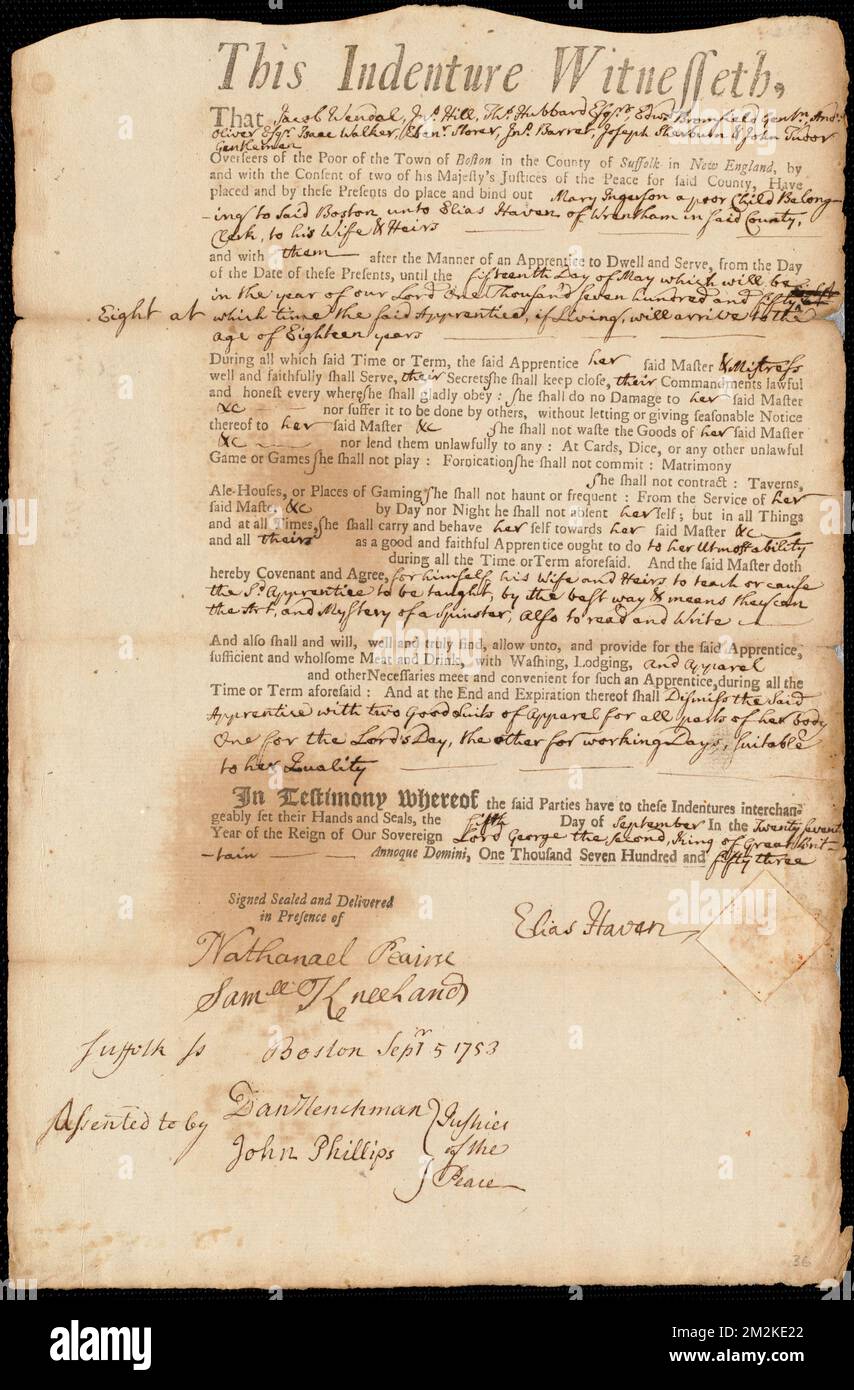 This Indenture Witnesseth,
That Jacob Wendal, Jnº. Hill, Thº. Hubbard Esqrs, Edwd Bromfield Gentn, Andw.
Oliver Esqr. Isaac Walker, Ebenr. Storer, Jnº. Barret, Joseph Sherburn & John Tudor
Gentlemen
Overseers of the Poor of the Town of Boston in the County of Suffolk in New England, by
and with the Consent of two of his Majesty's Justices of the Peace for said County, Have
placed and by these Presents do place and bind out Mary Ingerson a poor Child Belong-
-ing to Said Boston unto Elias Haven of Wrentham in said County,
Clerk, to his Wife & Heirs
and with them after the Manner of an Apprentice to Dwell and Serve, from the Day
of the Date of these Presents, until the fifteenth Day of May which will be
in the year of our Lord One Thousand Seven hundred and fifty
Eight at which time the said Apprentice, if Living, will arrive to the
age of Eighteen years
During all which said Time or Term, the said Apprentice her said Master & Mistress
well and faithfully shall Serve, their Secrets she shall keep close, their Commandments lawful
and honest every where she shall gladly obey : She shall do no Damage to her said Master
&c nor suffer it to be done by others, without letting or giving seasonable Notice
thereof to her said Master &c She shall not waste the Goods of her said Master
&c nor lend them unlawfully to any : At Cards, Dice, or any other unlawful
Game or Games She shall not play : Fornication She shall not commit : Matrimony
She shall not contract : Taverns,
Ale-Houses, or Places of Gaming She shall not haunt or frequent : From the Service of her
said Maste. &c by Day nor Night he shall not absent her self ; but in all Things
and at all Times, She shall carry and behave her self towards her said Master &c
and all theirs as a good and faithful Apprentice ought to do to her Utmost ability
during all the Time or Term aforesaid. And the said Master doth
hereby Covenant and Agree, for himself his Wife and Heirs to teach or cause
the Sd. Apprentice to be taught, by the best way & means they can
the Art, and Mystery of a Spinster, Also to read and Write
And also shall and will, well and truly find, allow unto, and provide for the said Apprentice,
sufficient and wholsome Meat and Drink, with Washing, Lodging, and Apparel
and other Necessaries meet and convenient for such an Apprentice, during all the
Time or Term aforesaid : And at the End and Expiration thereof shall Dismiss the Said
Apprentice with two Good Suits of Apparel for all parts of her body
One for the Lord's Day, the other for working Days, Suitable
to her Quality
In Testimony whereof the said Parties have to these Indentures interchan-
geably set their Hands and Seals, the fifth Day of September In the Twenty Sevent
Year of the Reign of Our Sovereign Lord George the Second, King of Great Brit-
-tain Annoque Domini, One Thousand Seven Hundred and fifty three
Signed Sealed and Delivered
in Presence of
Elias Haven
Nathanael Peirse
Samll Kneeland
Suffolk ss Boston Sepr 5 1753
Assented to by Dan Henchman
John Phillips
Justices
of the
Peace
36
alamy
Image ID: 2M2KE22
www.alamy.com